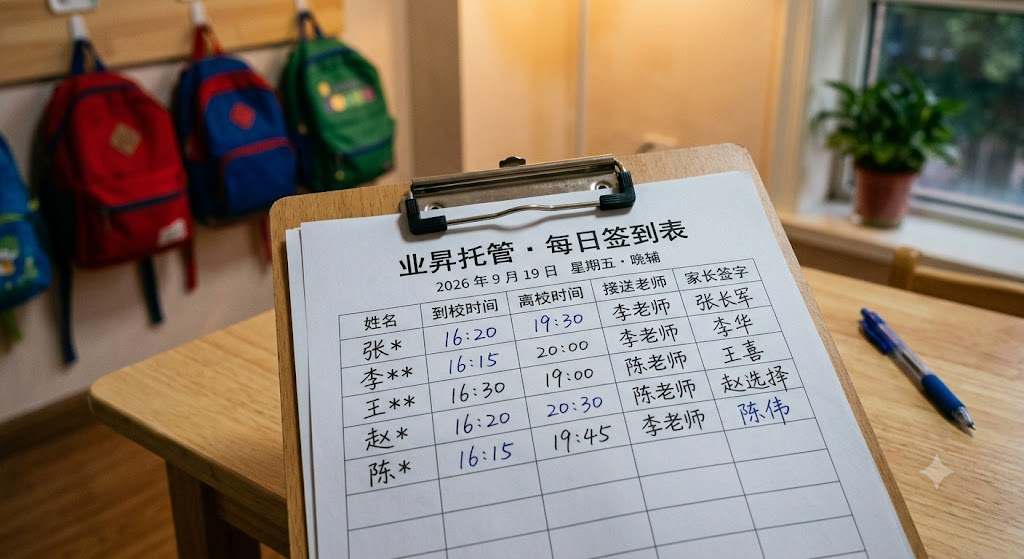 业昇托管·每日签到表
2026年9月19日 星期五·晚辅
姓名 到校时间 离校时间 接送老师 家长签字
张* 16:20 19:30 李老师 张长军
李** 16:15 20:00 李老师 李华
王** 16:30 19:00 陈老师 王喜
赵* 16:20 20:30 陈老师 赵选择
陈* 16:15 19:45 李老师 陈伟